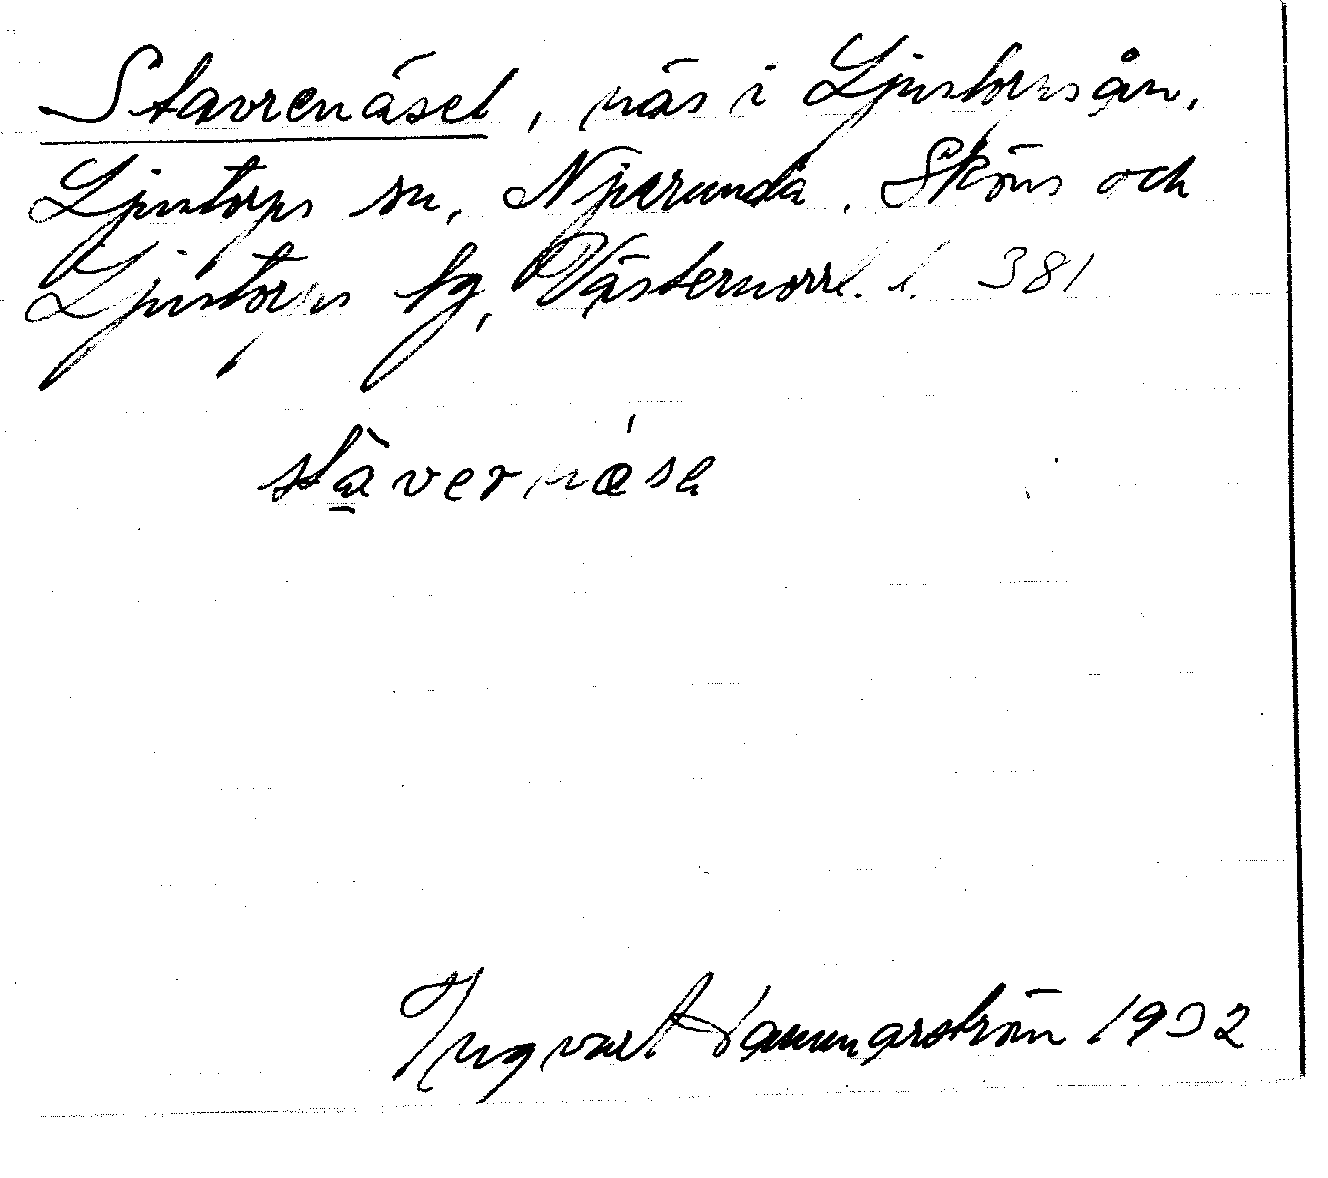 Stavrenäset, näs i Ljustorpsån,
Ljustorps sn, Njurunda, Sköns och
Ljustorps tg, Västernorrl. l. 381
stävernäse
Ingvart Hammarström 1932